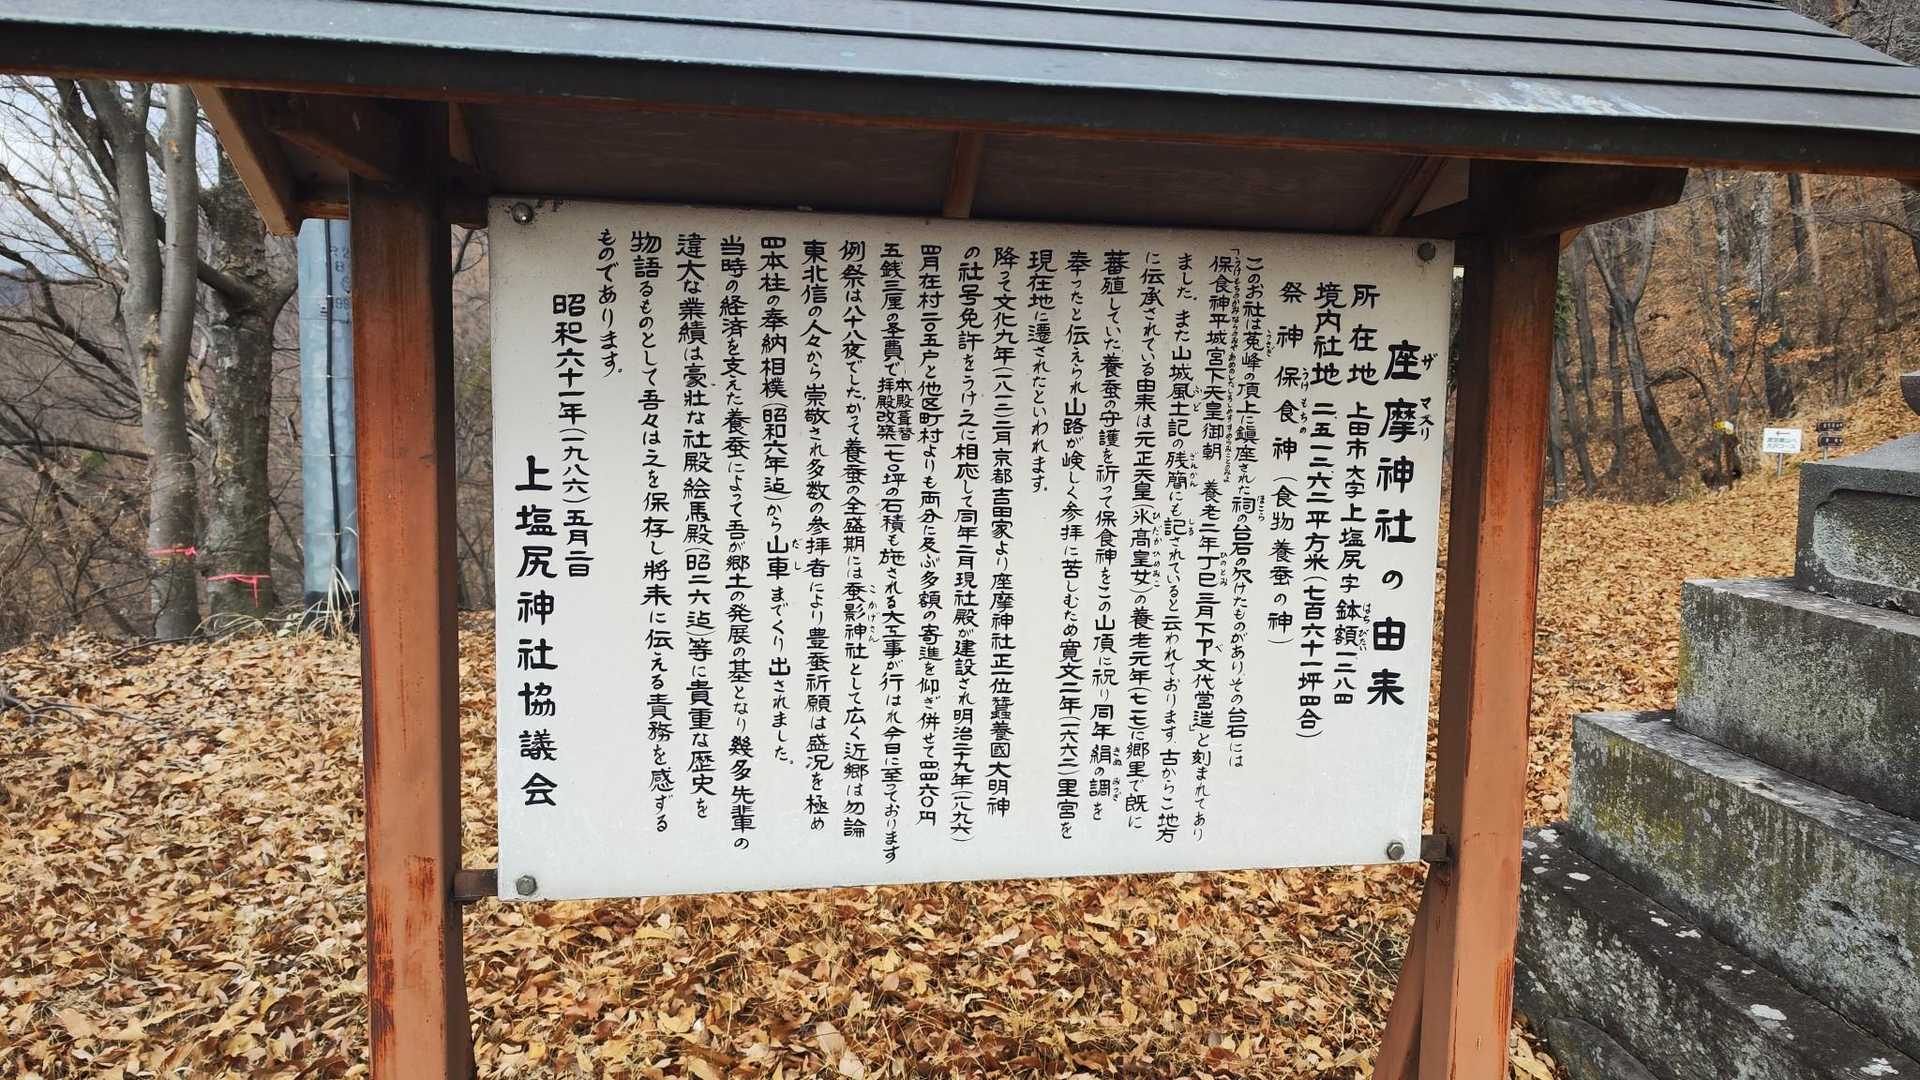 座摩神社の由来
所在地 上田市大字上塩尻字鉢額一三八四
境内社地 二五一三・六二平方米(七百六十一坪四合)
祭神 保食神(食物養蚕の神)
このお社は菟峰の頂上に鎮座された祠の台石の欠けたものがありその台石には
「保食神平城宮下天皇御朝 養老二年丁巳三月下下文代営造」と刻まれてあり
ました。また山城風土記の残簡にも記されていると云われております。古からこ地方
に伝承されている由来は元正天皇(氷高皇女)の養老元年(七一七)に郷里で既に
蕃殖していた養蚕の守護を祈って保食神をこの山頂に祝り同年絹の調を
奉ったと伝えられ山路が峻しく参拝に苦しむため寛文二年(一六六二)里宮を
現在地に遷されたといわれます。
降って文化九年(一八一二)二月京都吉田家より座摩神社正一位蠶養國大明神
の社号免許をうけ之に相応して同年二月現社殿が建設され明治二十九年(一八九六)
四月在村二〇五戸と他区町村よりも両分に及ぶ多額の寄進を仰ぎ併せて四四六〇円
五銭三厘の圣費で本殿葺替拝殿改築七〇坪の石積も施される大工事が行はれ今日に至っております
例祭は八十八夜でした。かって養蚕の全盛期には蚕影神社として広く近郷は勿論
東北信の人々から崇敬され多数の参拝者により豊蚕祈願は盛况を極め
四本柱の奉納相撲(昭和六年迠)から山車までくり出されました。
当時の経済を支えた養蚕によって吾が郷土の発展の基となり幾多先輩の
違大な業績は豪壮な社殿絵馬殿(昭二六迠)等に貴重な歴史を
物語るものとして吾々は之を保存し將来に伝える責務を感ずる
ものであります。
昭和六十一年(一九八六)五月二日
上塩尻神社協議会